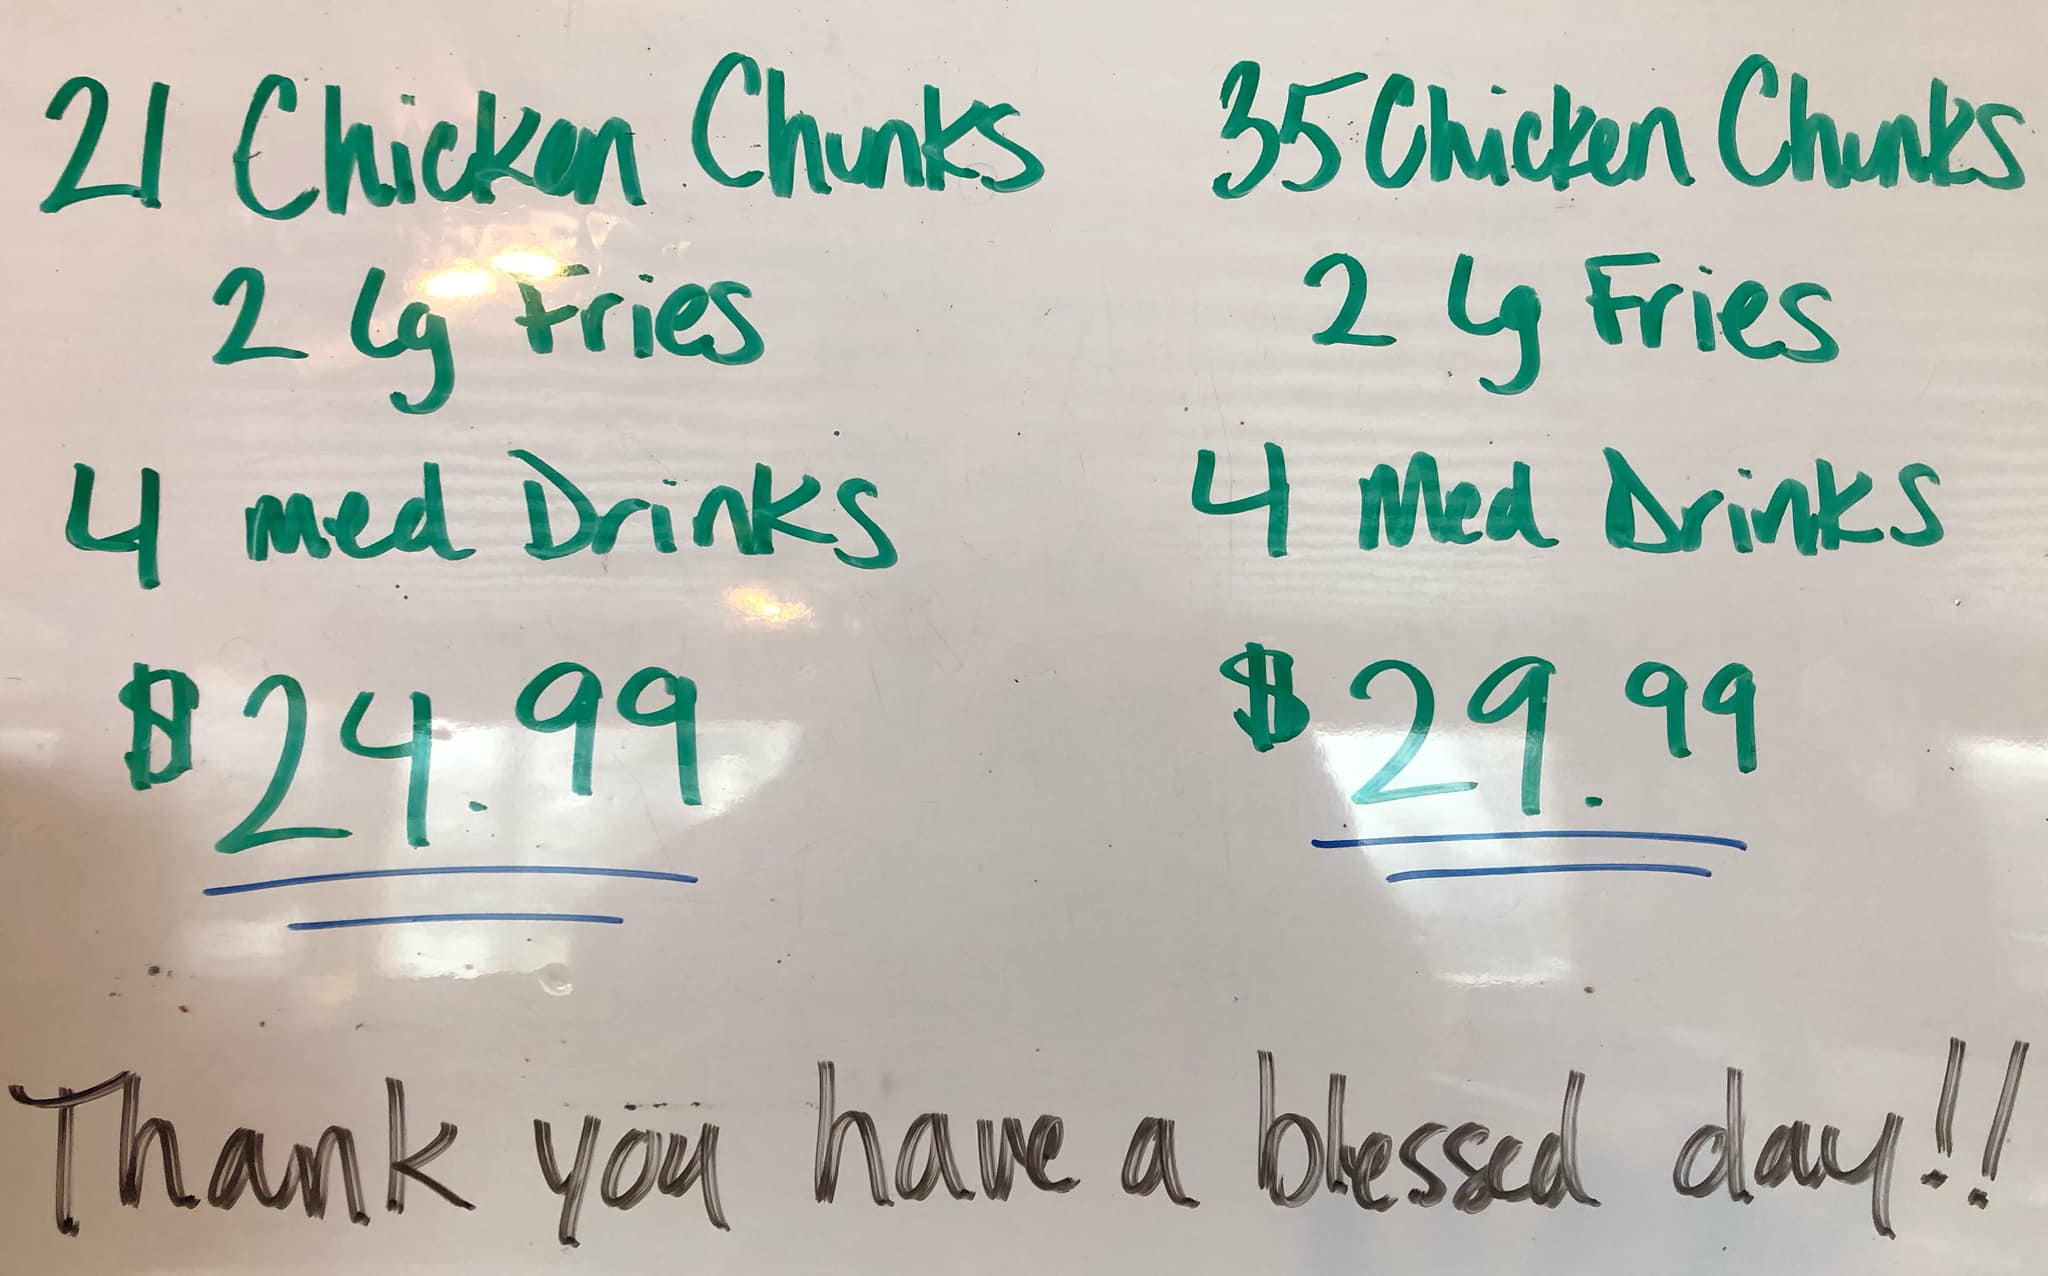 21 Chicken Chunks
2 lg Fries
4 med Drinks
$24.99
35 Chicken Chunks
2 lg Fries
4 Med Drinks
$29.99
Thank you have a blessed day!!